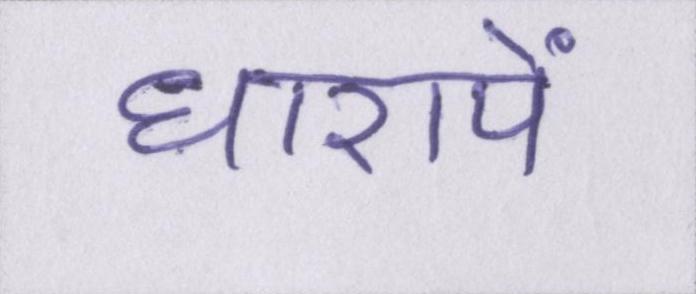 धारापें